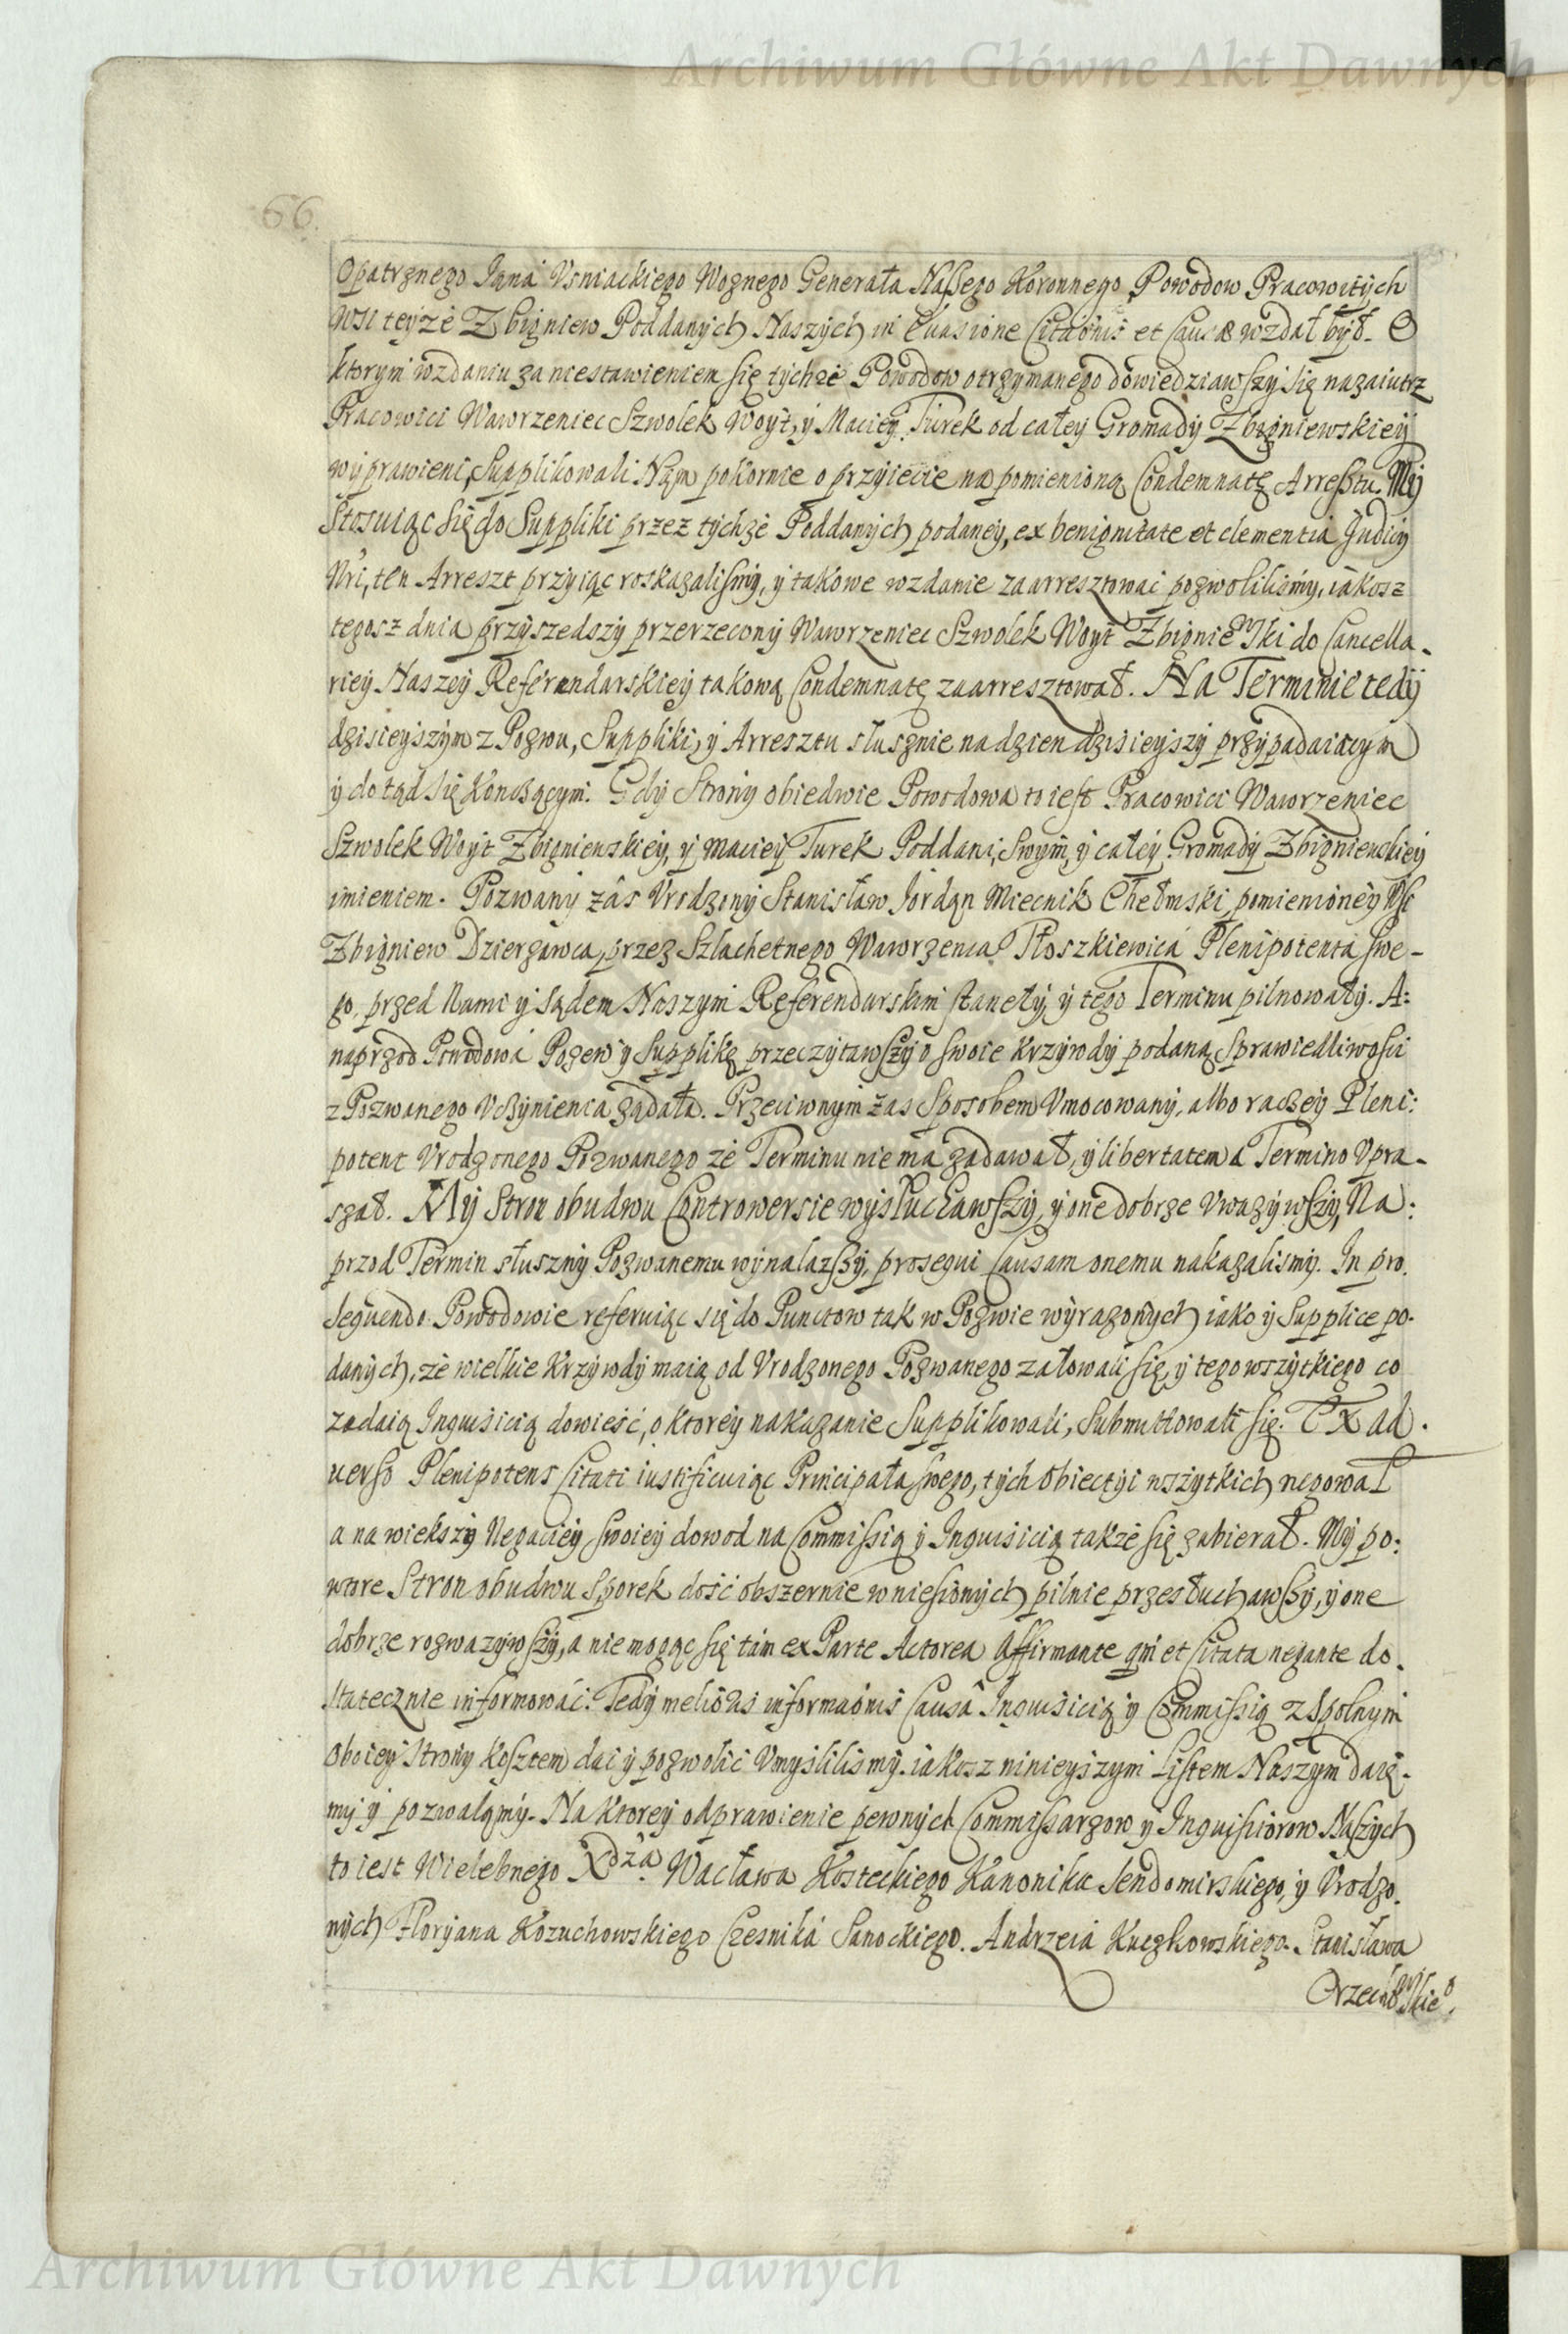 Archiwum Główne Akt Dawnych
66.
Opatrznego Jana Vsniackiego Woznego Generała Naszego Koronnego Powodow Pracowitych
Wsi teyże Zbigniew Poddanych Naszych in Euasione Citaōnis et Causæ wzdał był. O
ktorym wzdaniu za niestawieniem się tychże Powodow otrzymanego dowiedziawszy się nazaiutrz
Pracowici Wawrzeniec Szwolek Woyt, y Maciey Turek od całey Gromady Zbigniewskiey
wyprawieni, Supplikowali Nąm pokornie o przyięcie na pomienioną Condemnatę Arresztu. My
stosuiąc się do Suppliki przez tychże Poddanych podaney, ex benignitate et clementia Judicy
Nri, ten Arreszt przyiąc roskazalismy, y takowe wzdanie zaarresztować pozwolilismy, iakosz
tegosz dnia przyszedszy przerzeczony Wawrzeniec Szwolek Woyt Zbigniewski do Cancella-
riey Naszey Referendarskiey takową Condemnatę zaarresztował. Na Terminie tedy
dzisieyszym z Pozwu, Suppliki, y Arresztu słusznie na dzien dzisieyszy przypadaiącym
y dotąd się konczącym. Gdy Strony obiedwie Powodowa to iest Pracowici Wawrzeniec
Szwolek Woyt Zbigniewskiey, y Maciey Turek Poddani, Swym, y całey Gromady Zbigniewskiey
imieniem. Pozwany zâs Vrodzony Stanisław Jordąn Miecnik Chełmski, pomienioney Wsi
Zbigniew Dzierzawca, przez Szlachetnego Wawrzenca Tłoszkiewica Plenipotenta swe-
go, przed Nami y Sądem Naszym Referendarskim stanęły, y tego Terminu pilnowały. A:
naprzod Powodowa Pozew y Supplikę przeczytawszy o swoie krzywdy podaną, Sprawiedliwosci
z Pozwanego Vczynienia ządała. Przeciwnym zas Sposobem Vmocowany, albo raczey Pleni:
potent Vrodzonego Pozwanego że Terminu niema zadawał, y libertatem a Termino Vpra-
szał. My Stron obudwu Controwersie wysłuchawszy, y one dobrze Vwazywszy, Na:
przod Termin słuszny Pozwanemu wynalazszy, prosequi Causam onemu nakazalismy. In pro.
sequendo Powodowie referuiąc się do Punctow tak w Pozwie wyrazonych iako y Supplice po-
danych, że wielkie krzywdy maią od Vrodzonego Pozwanego załowali się, y tego wszytkiego co
zadaią Inquisicią dowieść, o ktorey nakazanie Supplikowali, submittowali się. Ex ad.
uerso Plenipotens Citati iustificuiąc Principała swego, tych Obiectyi wszytkich negował
a na większy Negaciey swoiey dowod na Commissią y Inquisicią także się zabierał. My po:
wtore Stron obudwu Sporek dość obszernie wniesionych pilnie przesłuchawszy, y one
dobrze rozwazywszy, a nie mogąc się tám ex Parte Actorea affirmante qm̄ et Citata negante do.
statecznie informować. Tedy melioris informaōnis Causâ Inquisicią y Commissią z spolnym
oboiey Strony kosztem dać y pozwolić Vmyslilismy. iakosz ninieyszym Listem Naszym daię-
my y pozwalamy. Na ktorey odprawienie pewnych Commissarzow y Inquisitorow Naszych
to iest Wielebnego Xdza Wacława Kosteckiego Kanonika Sendomirskiego, y Vrodzo.
nych Floryana Kozuchowskiego Czesnika Sanockiego. Andrzeia Kuczkowskiego. Stanisława
Orzechowskie°.
Archiwum Główne Akt Dawnych